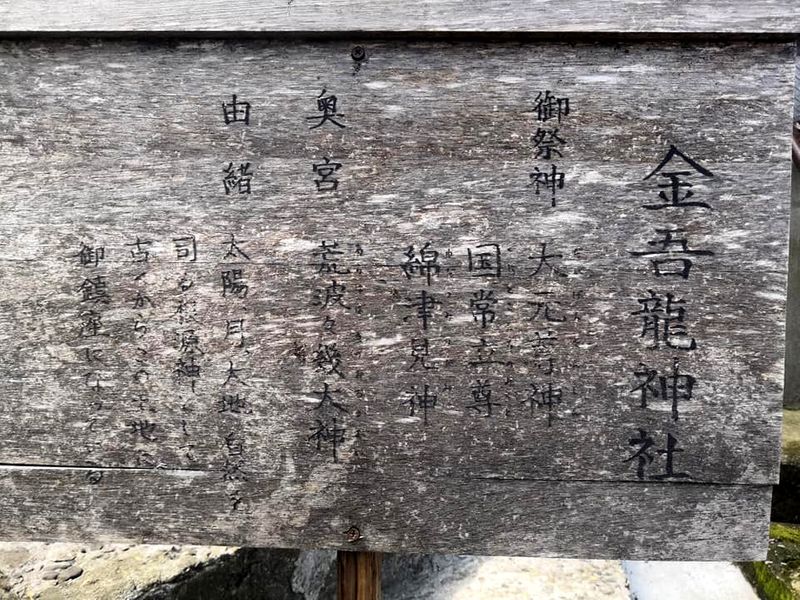 金吾龍神社
御祭神 大元尊神
国常立尊
綿津見神
奥宮 荒波々幾大神
由緒 太陽、月、大地、自然を
司る根源神として
古くからこの土地に
御鎮座になっている